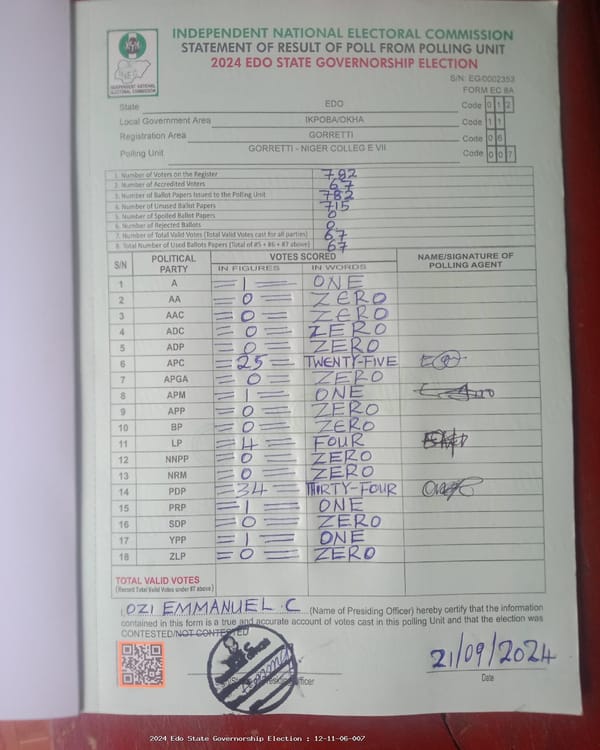 INDEPENDENT NATIONAL ELECTORAL COMMISSION
STATEMENT OF RESULT OF POLL FROM POLLING UNIT
2024 EDO STATE GOVERNORSHIP ELECTION
INEC
INDEPENDENT NATIONAL
ELECTORAL COMMISSION
S/N: EG/0002353
FORM EC 8A
State EDO Code 0 1 2
Local Government Area IKPOBA/OKHA Code 1 1
Registration Area GORRETTI Code 0 6
Polling Unit GORRETTI - NIGER COLLEG E VII Code 0 0 7
1. Number of Voters on the Register 782
2. Number of Accredited Voters 67
3. Number of Ballot Papers Issued to the Polling Unit 782
4. Number of Unused Ballot Papers 715
5. Number of Spoiled Ballot Papers 0
6. Number of Rejected Ballots 0
7. Number of Total Valid Votes (Total Valid Votes cast for all parties) 67
8. Total Number of Used Ballots Papers (Total of #5 + #6 + #7 above) 67
S/N POLITICAL PARTY VOTES SCORED NAME/SIGNATURE OF POLLING AGENT
IN FIGURES IN WORDS
1 A =1= ONE
2 AA =0= ZERO
3 AAC =0= ZERO
4 ADC =0= ZERO
5 ADP =0= ZERO
6 APC =25= TWENTY-FIVE
7 APGA =0= ZERO
8 APM =1= ONE
9 APP =0= ZERO
10 BP =0= ZERO
11 LP =4= FOUR
12 NNPP =0= ZERO
13 NRM =0= ZERO
14 PDP =34= THIRTY-FOUR
15 PRP =1= ONE
16 SDP =0= ZERO
17 YPP =1= ONE
18 ZLP =0= ZERO
TOTAL VALID VOTES
(Record Total Valid Votes under #7 above)
I OZI EMMANUEL C (Name of Presiding Officer) hereby certify that the information
contained in this form is a true and accurate account of votes cast in this polling Unit and that the election was
CONTESTED/NOT CONTESTED
21/09/2024
Officer
Date
2024 Edo State Governorship Election : 12-11-06-007